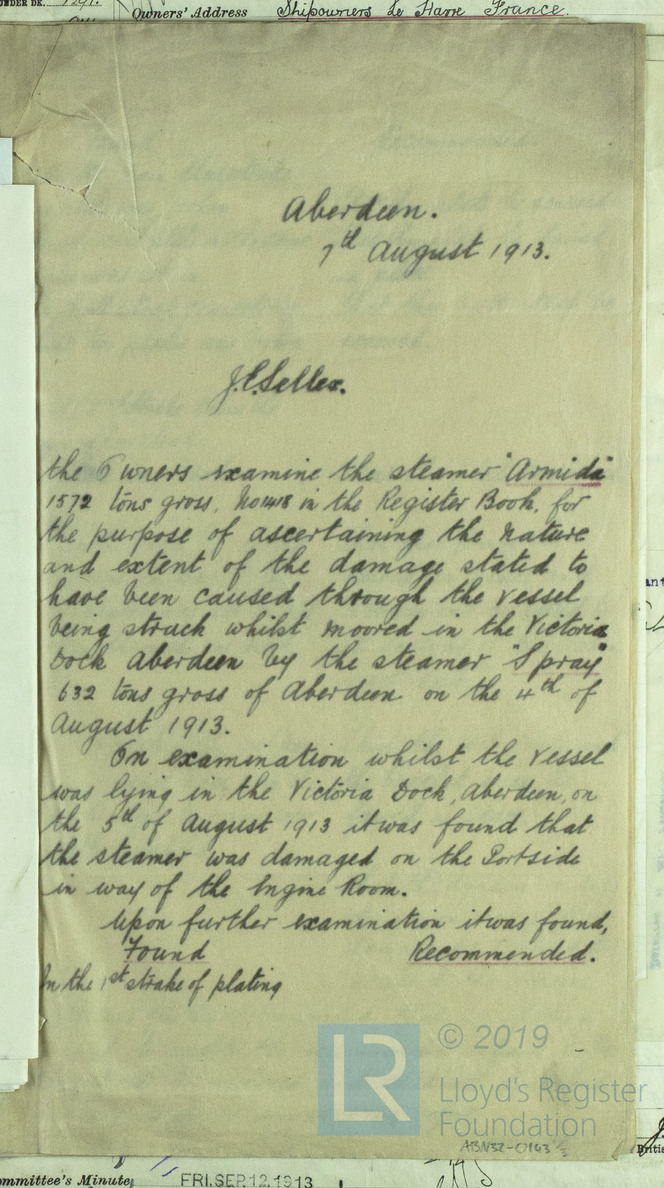 UNDER DK. 1291.
Owners' Address Shipowners Le Havre France.
Aberdeen.
7th August 1913.
the Owners examine the steamer "Armida"
1572 tons gross, No 1418 in the Register Book, for
the purpose of ascertaining the nature
and extent of the damage stated to
have been caused through the vessel
being struck whilst moored in the Victoria
Dock Aberdeen by the steamer "Spray"
632 tons gross of Aberdeen on the 4th of
August 1913.
On examination whilst the vessel
was lying in the Victoria Dock, Aberdeen, on
the 5th of August 1913 it was found that
the steamer was damaged on the Portside
in way of the Engine Room.
Upon further examination it was found,
Found Recommended.
In the 1st strake of plating
LR
© 2019
Lloyd's Register
Foundation
ABN32-0143
ommittee's Minute
FRI. SEP. 12. 1913